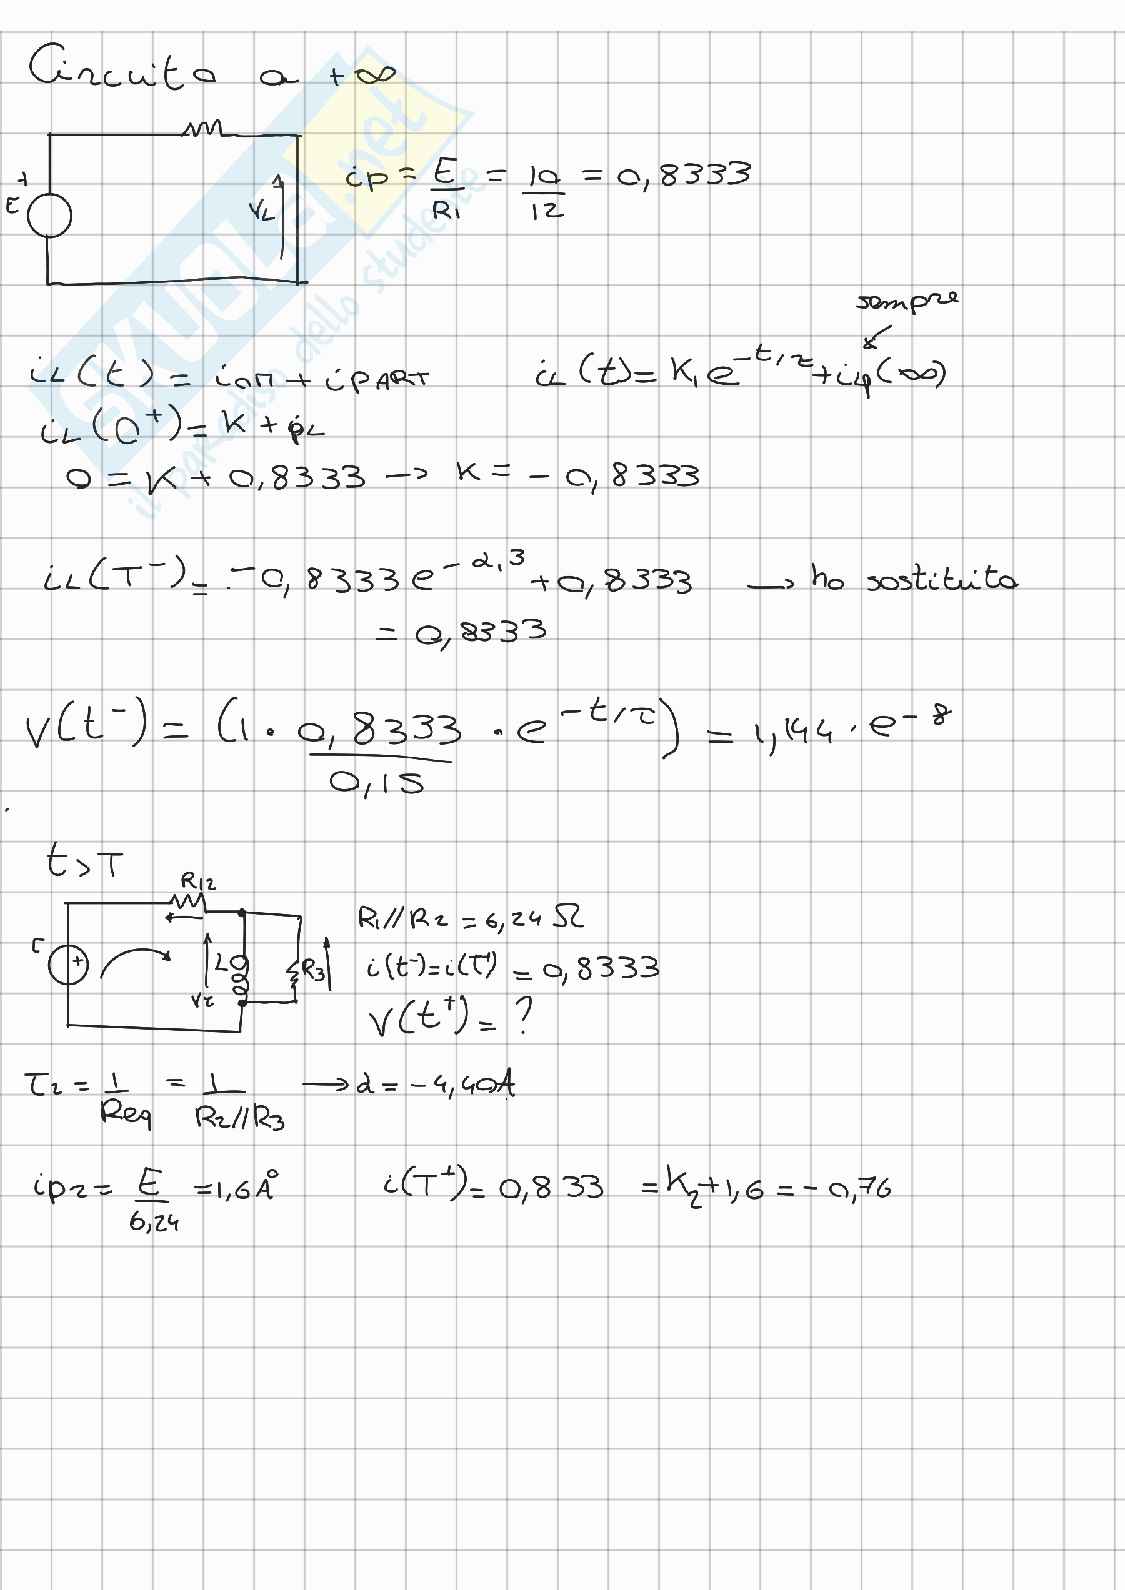 Circuito a +∞
+
E
VL
ip = E/R1 = 10/12 = 0,8333
sempre
iL(t) = iOM + iPART
iL(t) = K1 e^-t/τ + iLp(∞)
iL(0+) = K + ipL
0 = K + 0,8333 → K = - 0,8333
iL(T-) = -0,8333 e^-2,3 + 0,8333 → ho sostituito
= 0,8333
V(t-) = (1 · 0,8333/0,15 · e^-t/τ) = 1,144 · e-8
t>T
R12
+
L
R3
R1//R2 = 6,24 Ω
i(t-) = i(T+) = 0,8333
V(t+) = ?
τ2 = 1/Req = 1/R2//R3 → d = -4,40A
ip2 = E/6,24 = 1,6A
i(T+) = 0,833 = K2+1,6 = -0,76
SKUOLA.net
il paradiso dello studente